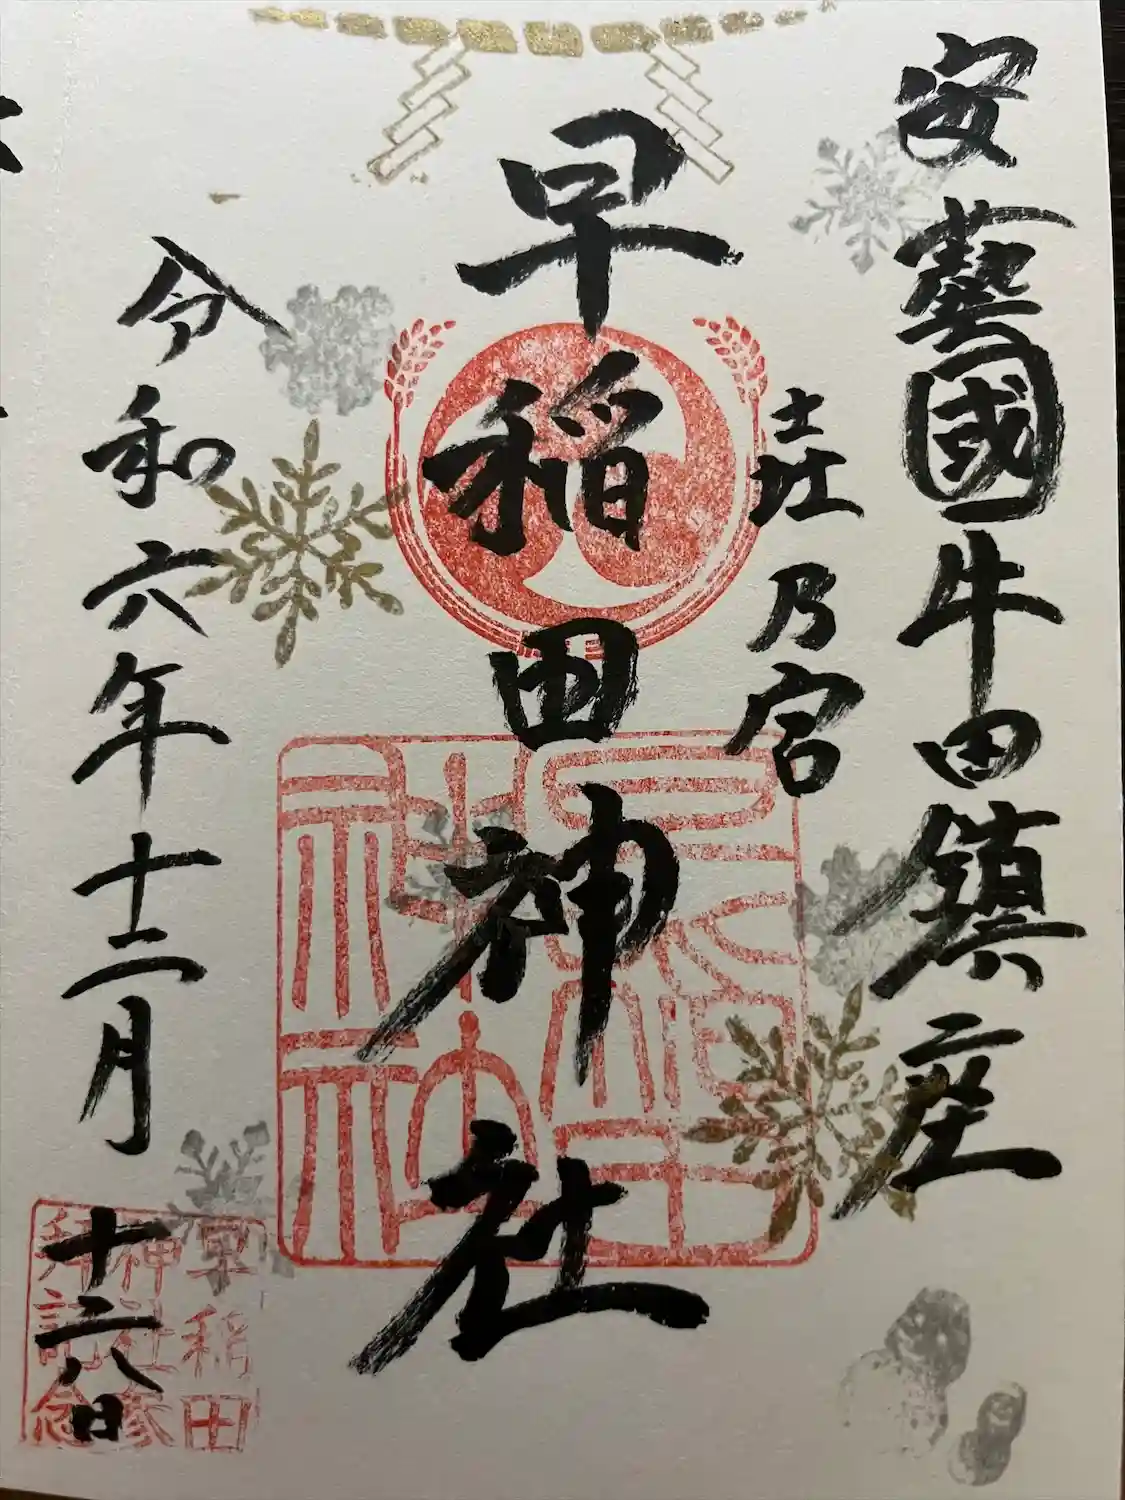 安藝國牛田鎮座
乃宮
早稲田神社
令和六年十二月
十二八日
早稲田
神社
早稲田
神社参
拝記念